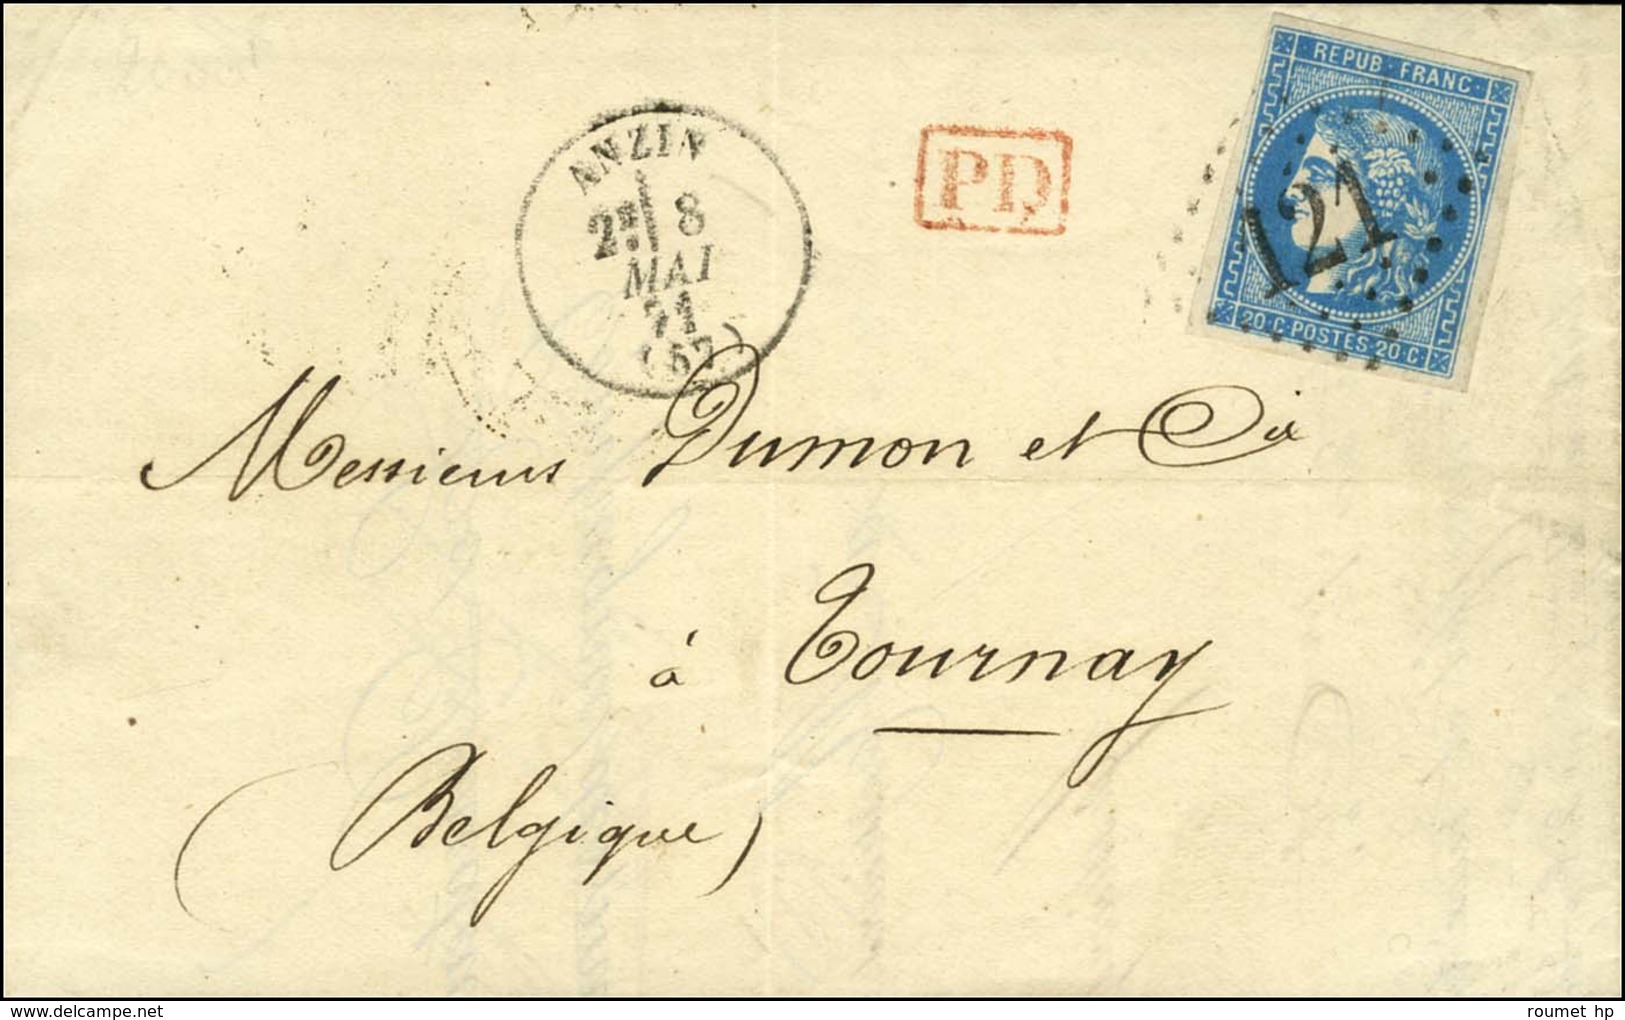 REPUB · FRANC ·
121
20 · C · POSTES · 20 · C ·
ANZIN
2E 8
MAI
71
(57)
PD
Messieurs Dumon et Cie
à Tournay
(Belgique)
www.delcampe.net
roumet hp